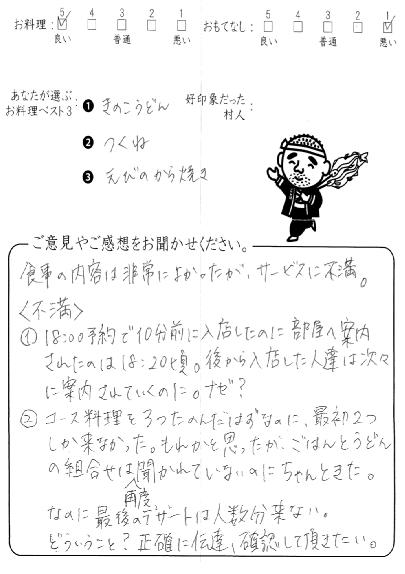 お料理: 5 4 3 2 1 おもてなし: 5 4 3 2 1
良い 普通 悪い 良い 普通 悪い
あなたが選ぶ お料理ベスト3: ❶ きのこうどん 好印象だった 村人:
❷ つくね
❸ えびのから焼き
ご意見やご感想をお聞かせください。
食事の内容は非常によかったが、サービスに不満。
〈不満〉
① 18:00予約で10分前に入店したのに部屋へ案内
されたのは18:20頃。後から入店した人達は次々
に案内されていくのに。ナゼ?
② コース料理を3つたのんだはずなのに、最初2つ
しか来なかった。もれかと思ったが、ごはんとうどん
の組合せは聞かれていないのにちゃんときた。
再度
なのに最後のデザートは人数分来ない。
どういうこと?正確に伝達、確認して頂きたい。